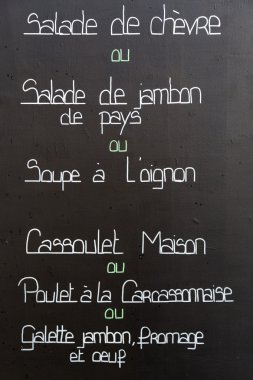 Salade de chèvre
ou
Salade de jambon
de pays
ou
Soupe à l'oignon
Cassoulet Maison
ou
Poulet à la Carcassonnaise
ou
Galette jambon, fromage
et oeuf